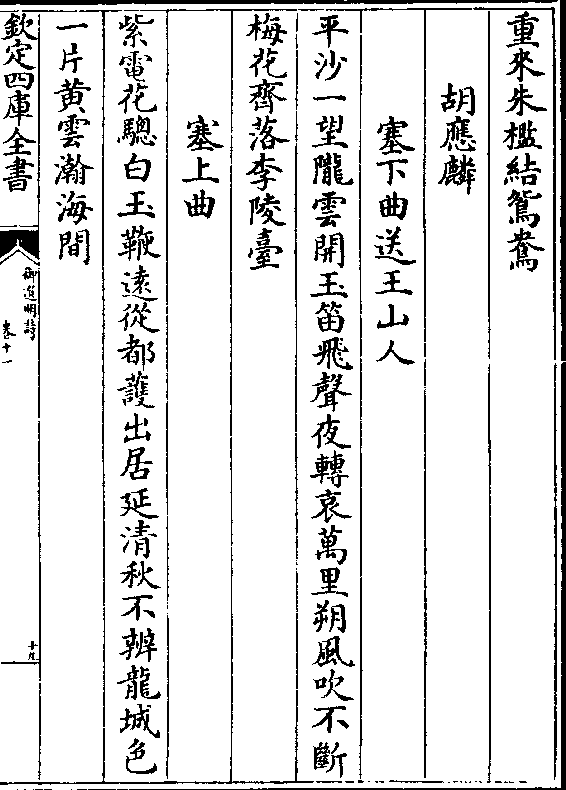 重來朱檻結鴛鴦
胡應麟
塞下曲送王山人
平沙一望隴雲開玉笛飛聲夜轉哀萬里朔風吹不斷
梅花齊落李陵臺
塞上曲
紫電花驄白玉鞭遠從都護出居延清秋不辨龍城色
一片黃雲瀚海間
欽定四庫全書
御選明詩
卷十一